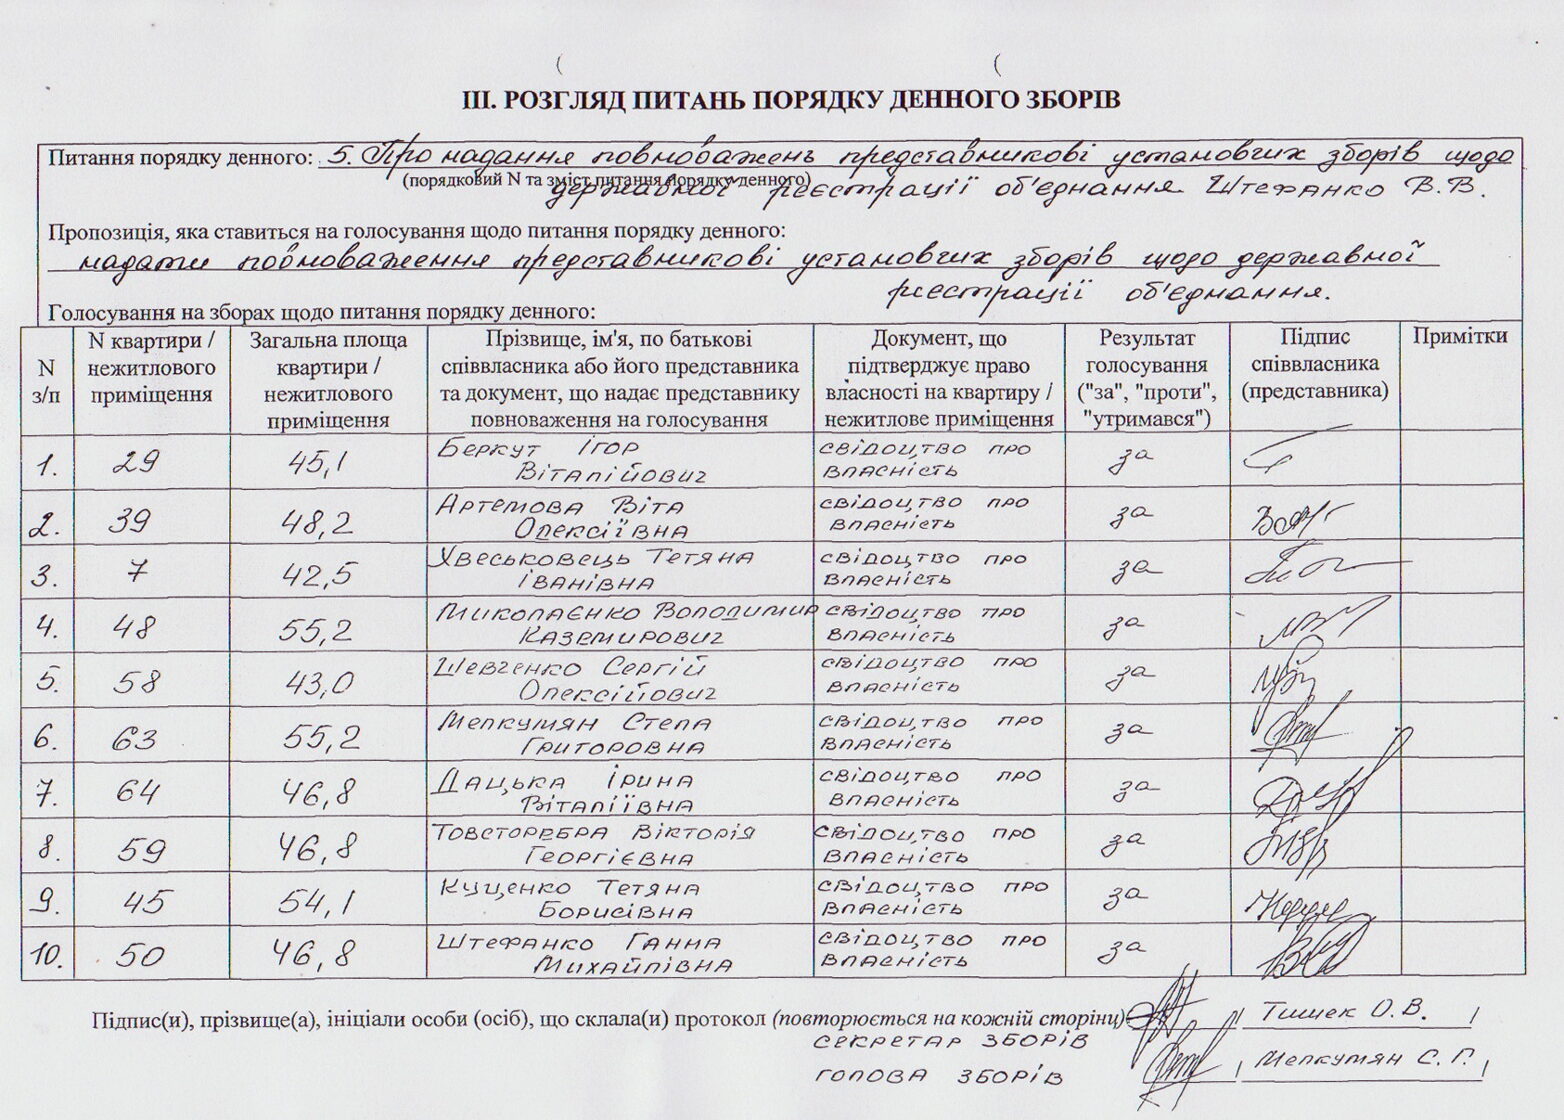 III. РОЗГЛЯД ПИТАНЬ ПОРЯДКУ ДЕННОГО ЗБОРІВ
Питання порядку денного: 5. Про надання повноважень представникові установчих зборів щодо
(порядковий N та зміст питання порядку денного)
державної реєстрації об'єднання Штефанко В.В.
Пропозиція, яка ставиться на голосування щодо питання порядку денного:
надати повноваження представникові установчих зборів щодо державної
реєстрації об'єднання.
Голосування на зборах щодо питання порядку денного:
N з/п N квартири / нежитлового приміщення Загальна площа квартири / нежитлового приміщення Прізвище, ім'я, по батькові співвласника або його представника та документ, що надає представнику повноваження на голосування Документ, що підтверджує право власності на квартиру / нежитлове приміщення Результат голосування ("за", "проти", "утримався") Підпис співвласника (представника) Примітки
1. 29 45,1 Беркут Ігор Віталійович свідоцтво про власність за
2. 39 48,2 Артемова Віта Олексіївна свідоцтво про власність за
3. 7 42,5 Хвеськовець Тетяна Іванівна свідоцтво про власність за
4. 48 55,2 Миколаєнко Володимир Каземирович свідоцтво про власність за
5. 58 43,0 Шевченко Сергій Олексійович свідоцтво про власність за
6. 63 55,2 Мелкумян Стела Григоровна свідоцтво про власність за
7. 64 46,8 Дацька Ірина Віталіївна свідоцтво про власність за
8. 59 46,8 Товсторебра Вікторія Георгієвна свідоцтво про власність за
9. 45 54,1 Куценко Тетяна Борисівна свідоцтво про власність за
10. 50 46,8 Штефанко Ганна Михайлівна свідоцтво про власність за
Підпис(и), прізвище(а), ініціали особи (осіб), що склала(и) протокол (повторюється на кожній сторінці) / Тишек О.В. /
секретар зборів
голова зборів / Мелкумян С.Г. /